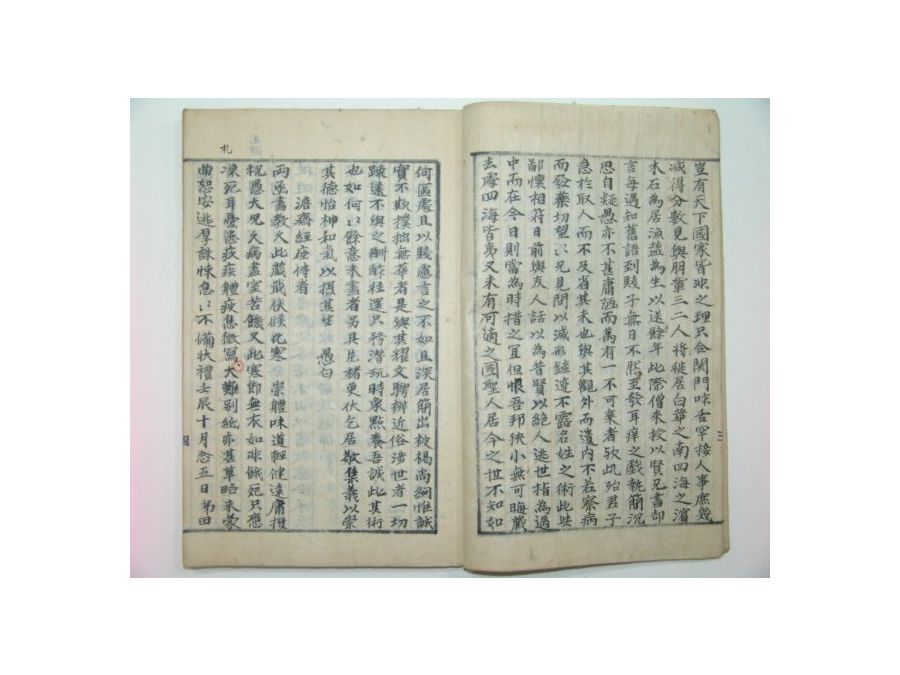 豈有天下國家皆非之理只合関門咋舌罕接人事庶幾
減得分數見與朋輩三二人將徙居白華之南四海之濱
木石為居漁盐為生以送餘年此際僧來投以賢兄書部
言每遇知舊語到賤子無日不然至發耳痒之戱執簡沉
思自疑愚亦不甚庸陋而萬有一不可棄者欤此殆君子
急於取人而不及省其末也與其觀外而遺内不若察病
而發藥切望兄見問以滅形鏟迹不露名姓之術此些
鄙懷相符日前與友人話以為昔賢以絶人逃世指為過
中而在今日則當為時措之宜但恨吾邦狭小無可晦藏
去處四海皆夷又未有可適之國聖人居今之世不知如
何區處且以賤慮言之不如且深居簡出被褐尚絅惟誠
實不欺撲拙無華者是與其耀文騁辦近俗涉世者一切
踈遠不與之酬酢往還只務潜玩時衆黙養吾誠此其術
也如何餘意未盡者另具片楮更伏乞居敬集義以崇
其德怡神和氣以摂其生 愚白
澹齋經座侍者
両函書教久此蔵伏惟花寒 崇體味道輕健遠庸拱
祝愚大児久病盡室苦饑又此寒節無衣如球餓死只應
凍死耳憂患疚疾體疲息微寫大難别紙亦甚草略未蒙
曲恕安逃厚誅悚息不備状禮壬辰十月念五日弟田
札
三